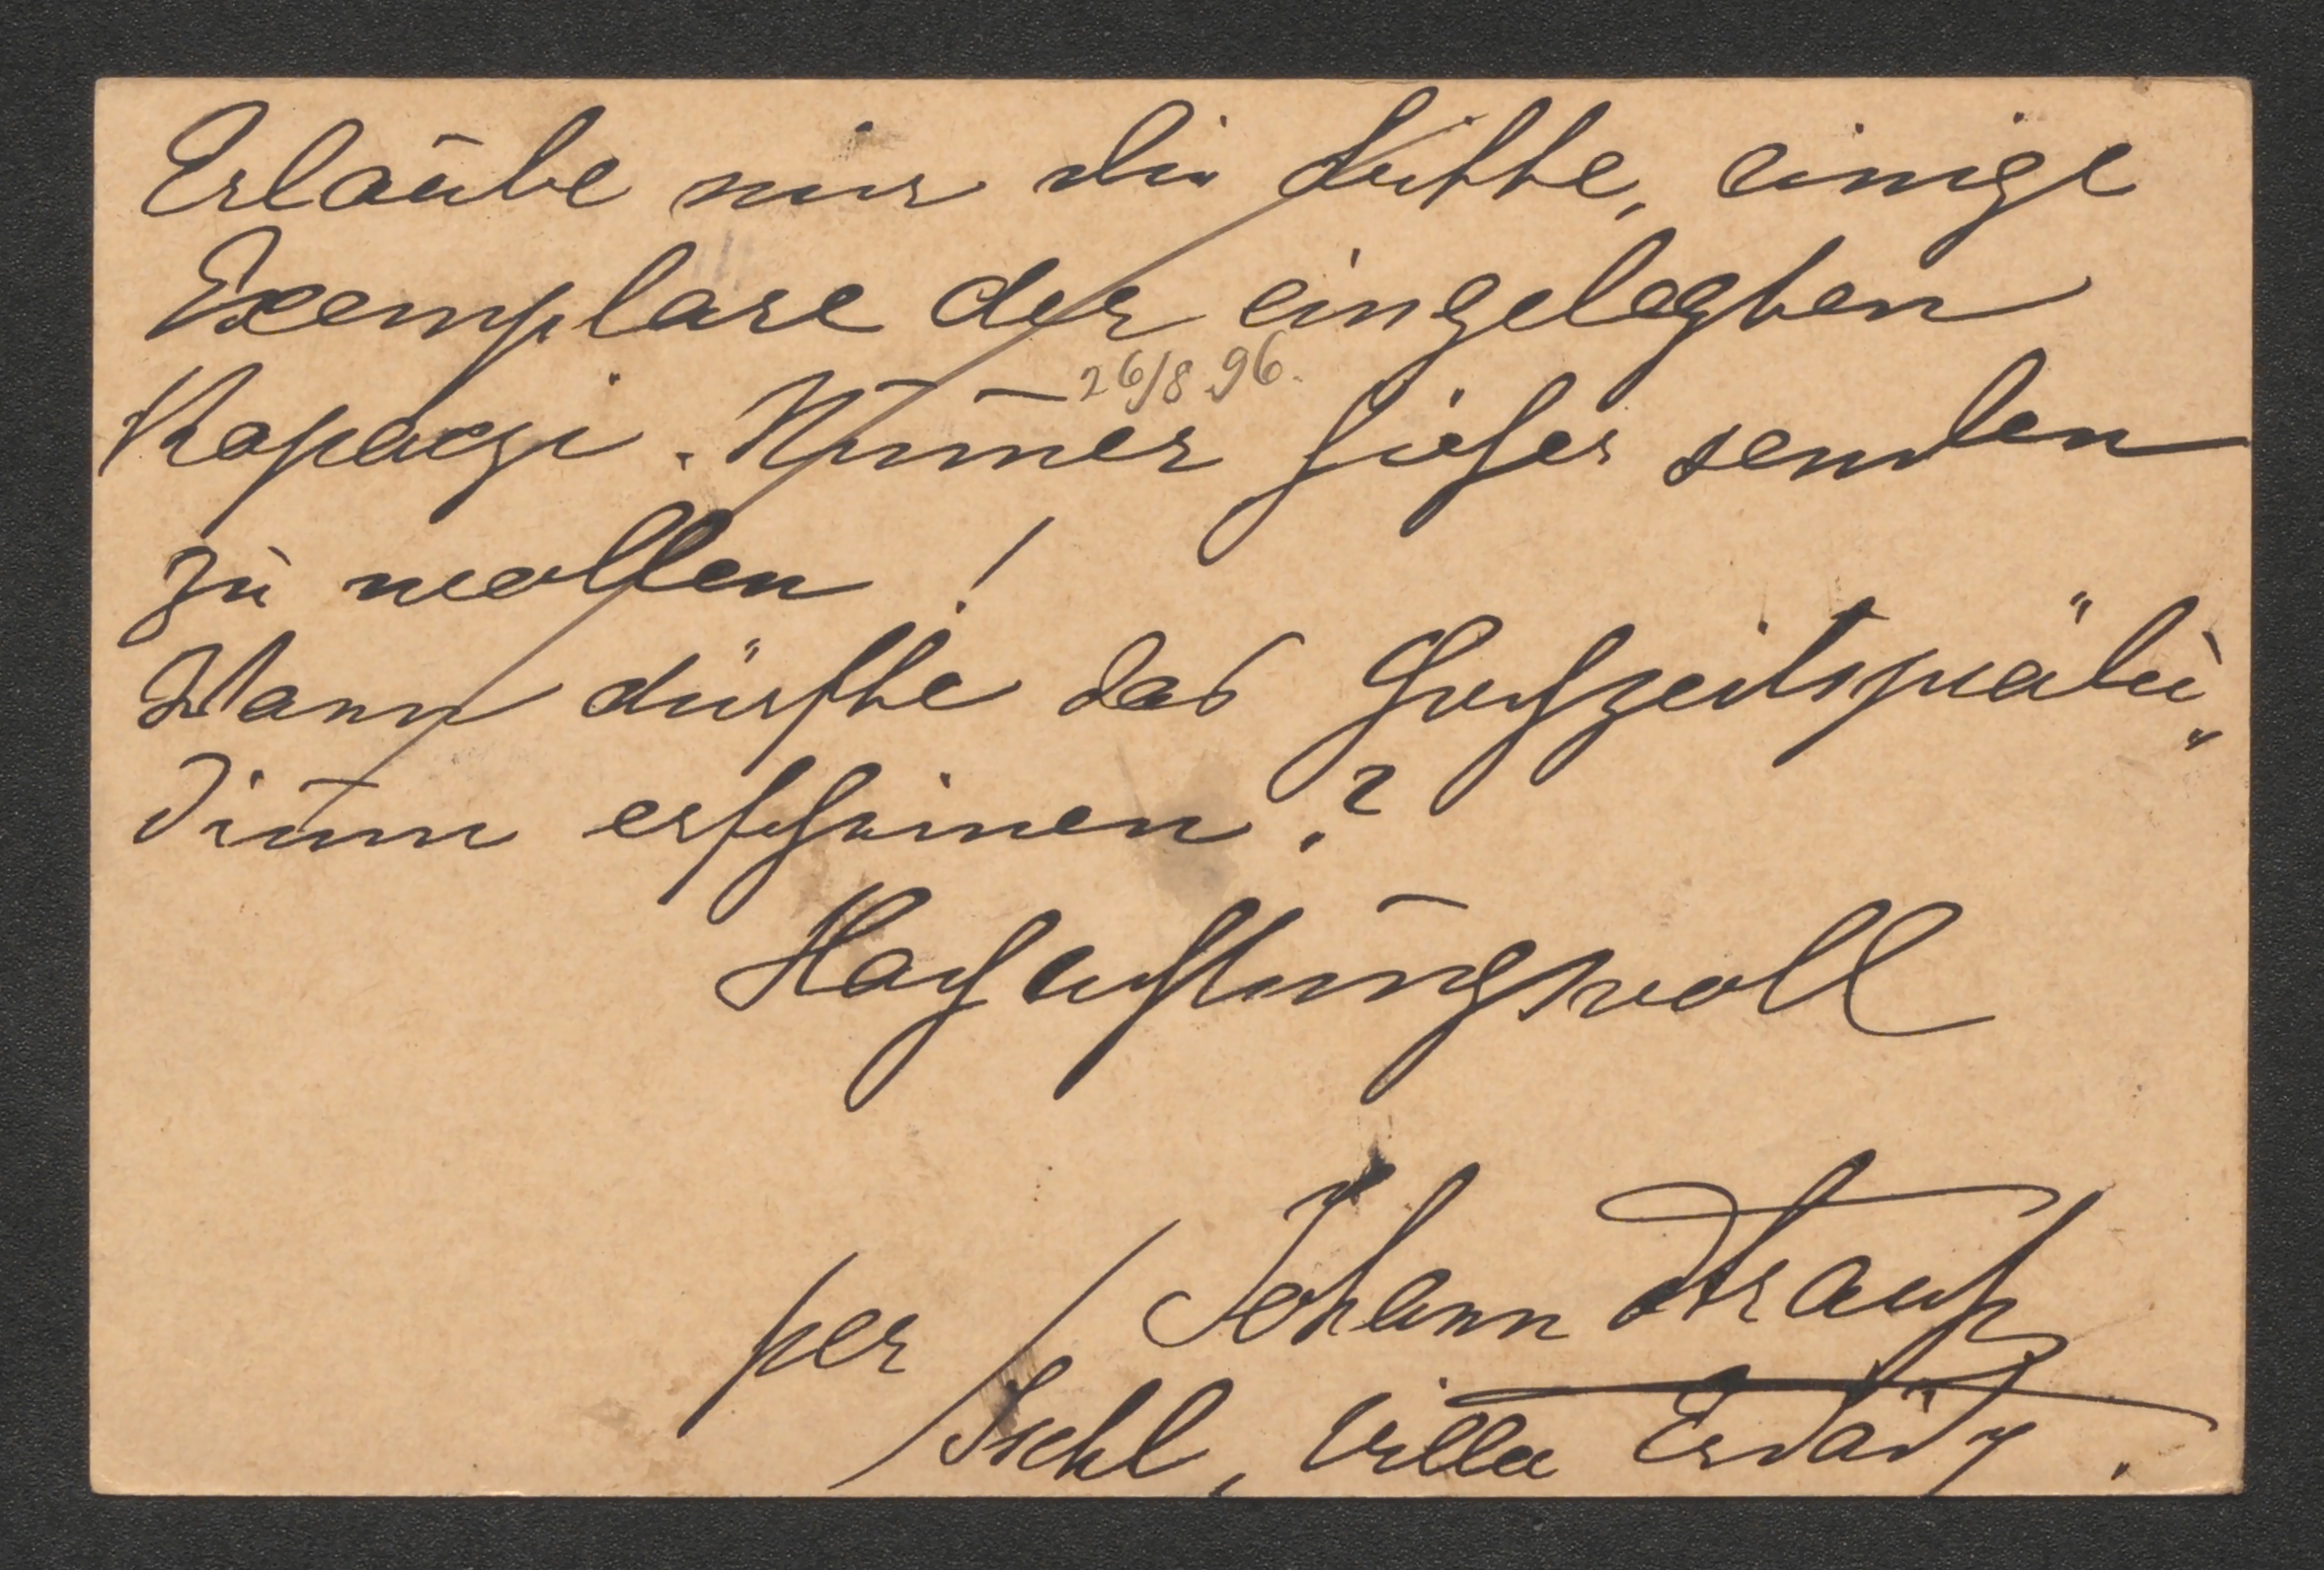 Erlaube mir die Bitte, einige
Exemplare der eingelegten
26/8 96.
Kopaczi. Num̅er hieher senden
zu wollen!
Wann dürfte das Hochzeitsprälu„
dium erscheinen?
Hochachtungsvoll
Johann Strauß
per / Ischl, Villa Erdödy.